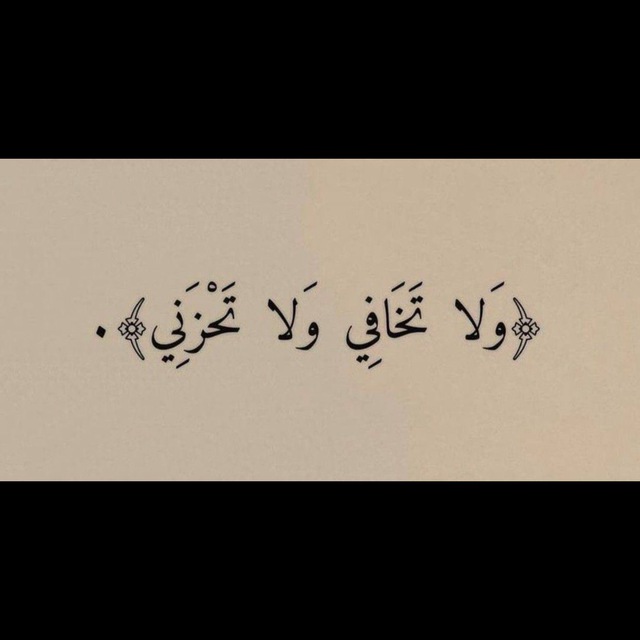 ﴿وَلا تَخَافِي وَلا تَحْزَنِي﴾.